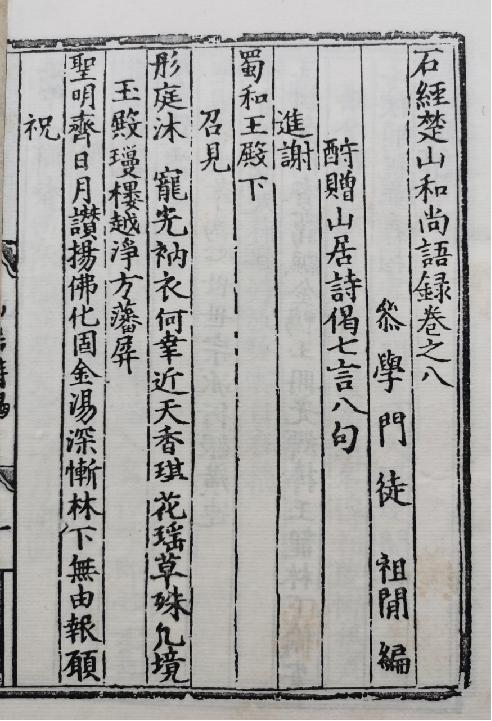 石經楚山和尚語録卷之八
叅學門徒 祖閒編
酧贈山居詩偈七言八句
進謝
蜀和王殿下
召見
彤庭沐 寵光衲衣何幸近天香琪花瑶草殊凡境
玉殿瓊樓越淨方藩屏
聖明齊日月讃揚佛化固金湯深慚林下無由報願
祝